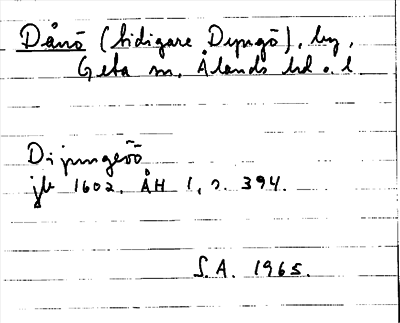 Dånö (tidigare Dyngö), by,
Geta sn, Ålands hd o. l.
Dijungeöö
jb 1602. ÅH 1, s. 394.
S.A. 1965.